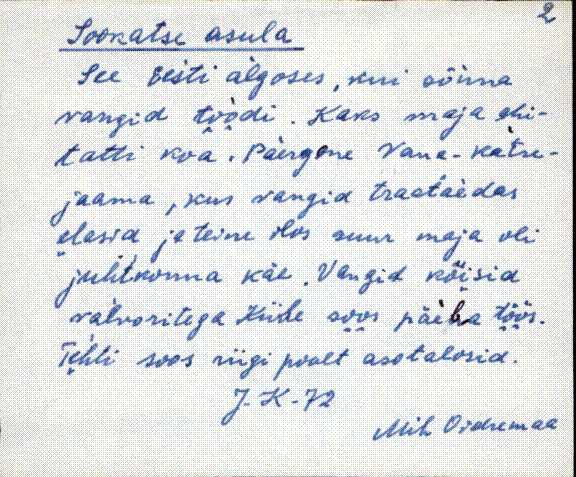 2
Sookatse asula
See Eesti algoses, kui sõnna
vangid töödi. Kaks maja ehi-
tatti kva. Päergone Vana-katse-
jaama, kus vangid traataedas
elasid ja teine ilos suur maja oli
juhtkonna käe. Vangid kõisid
valvoritega Kiile soos päeba töös.
Tehti soos riigi poolt asotalosid.
J-K-72
Mih Oidremaa